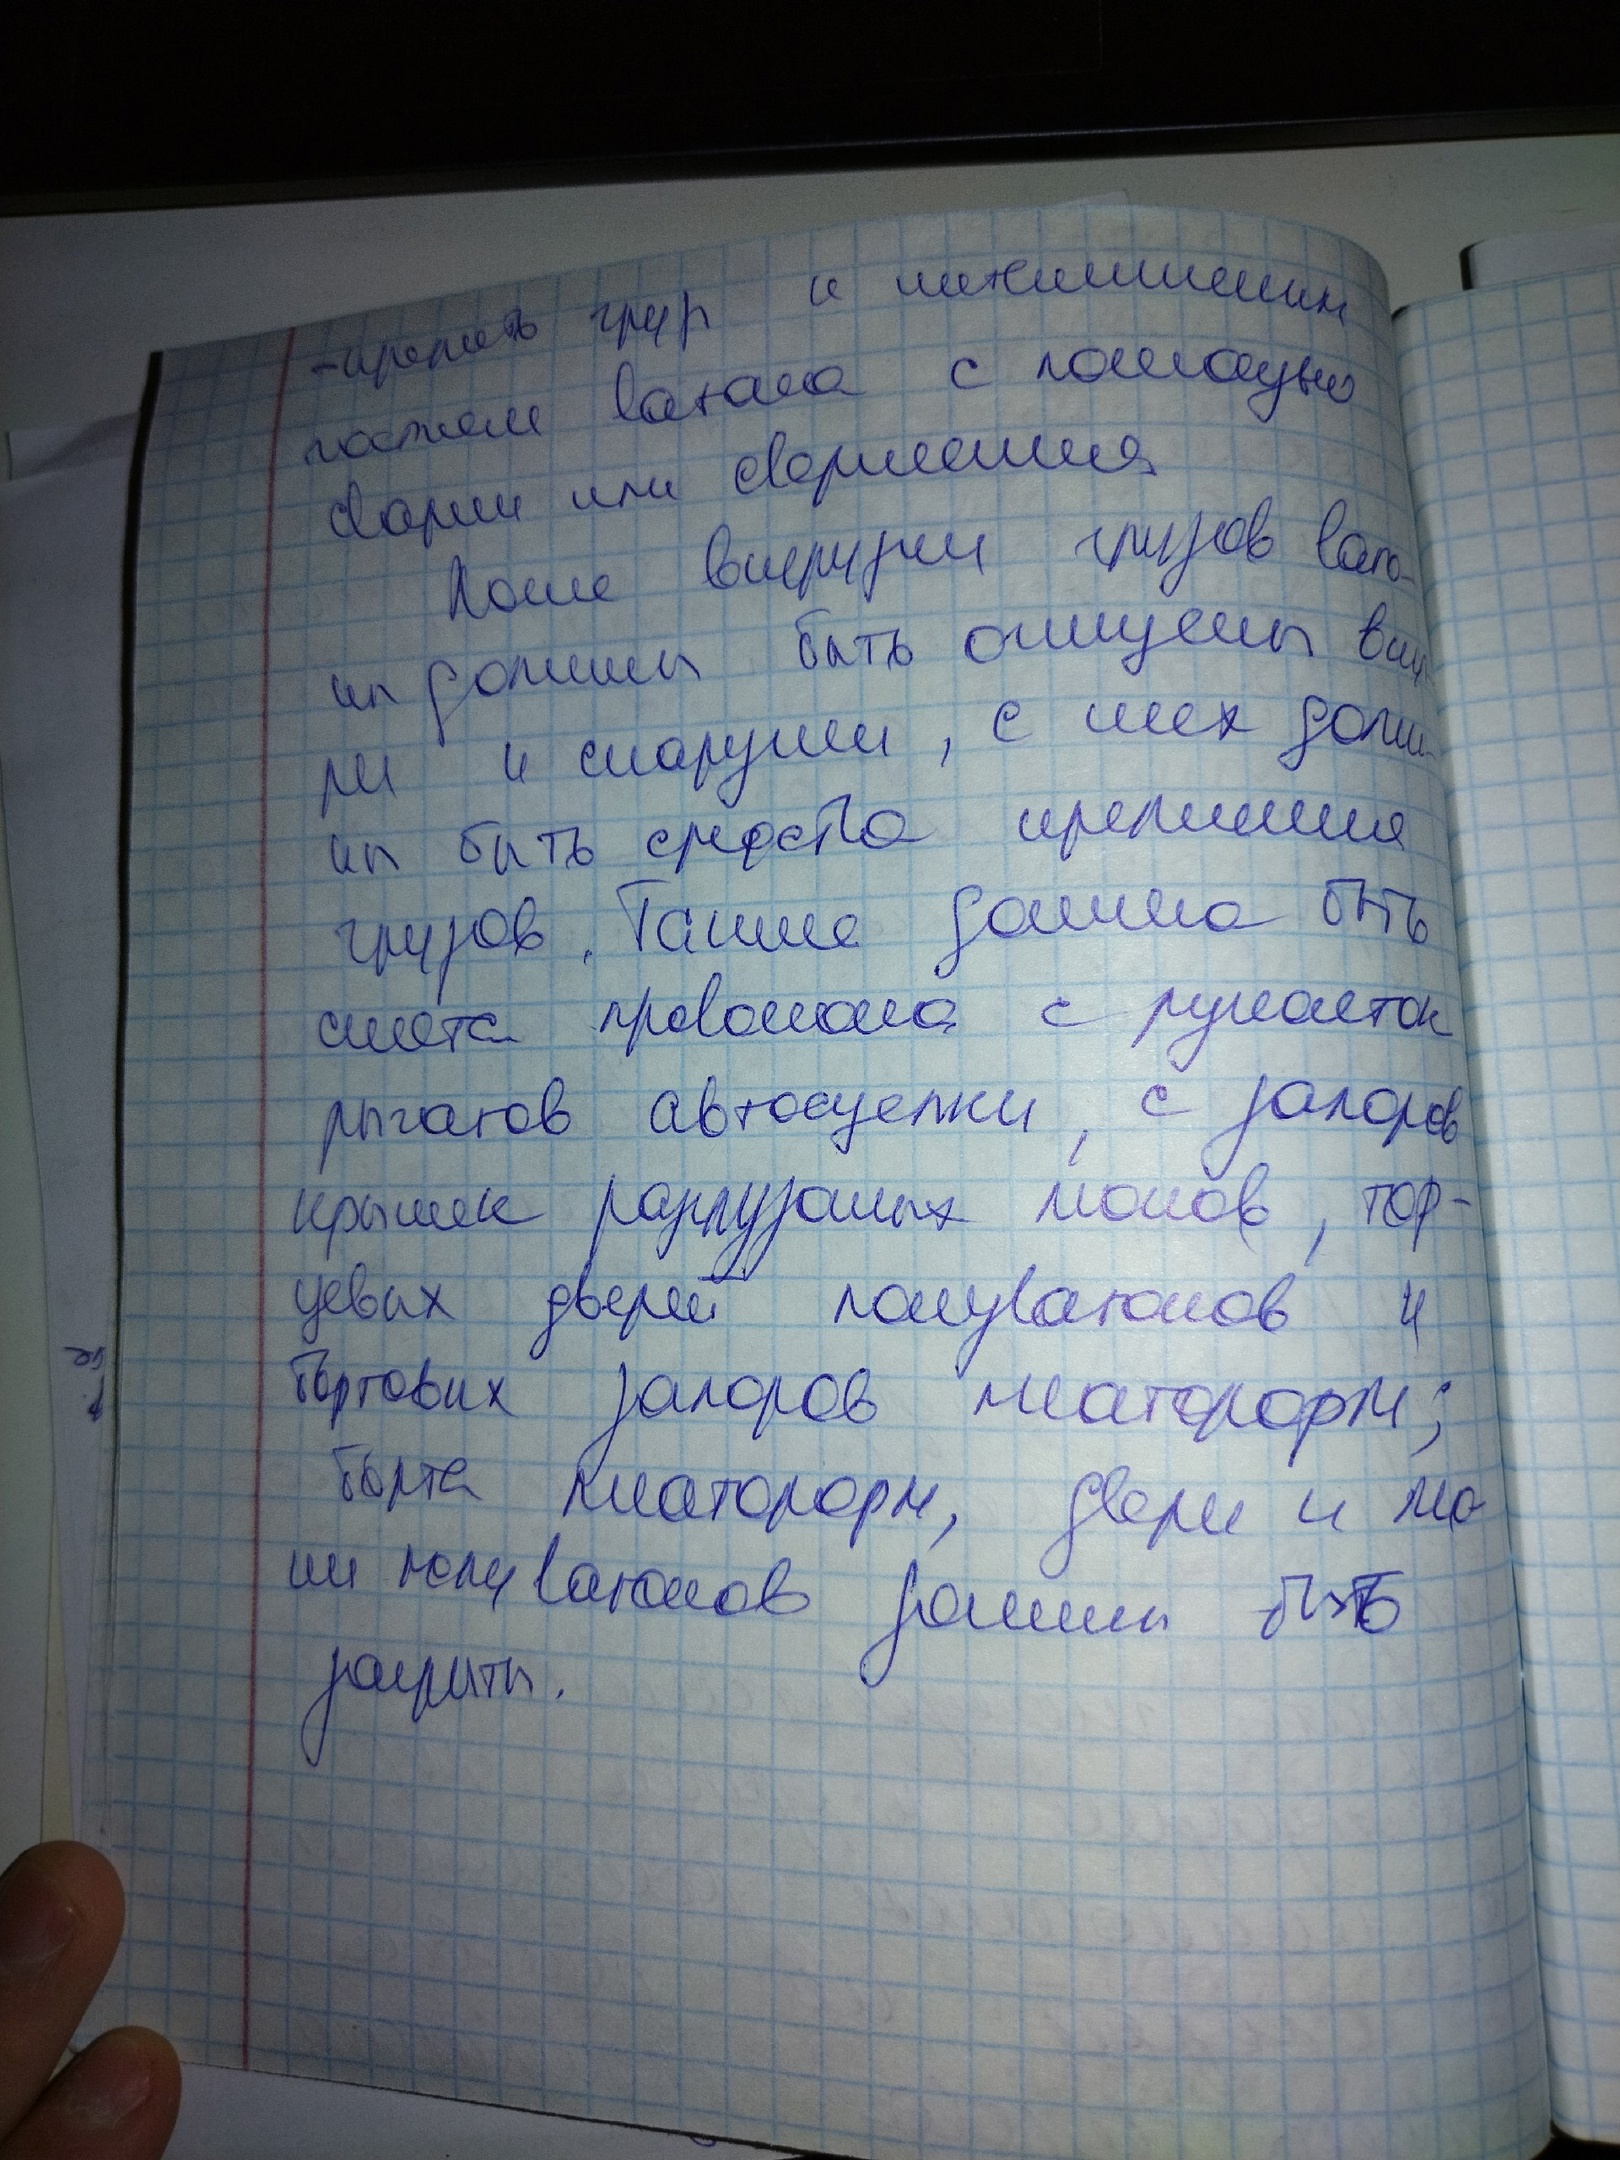 -крепить груз к металлическим
частям вагона с помощью
сварки или сверления
После выгрузки грузов ваго-
ны должны быть очищены внут
ри и снаружи, с них долж-
ны быть средства крепления
грузов. Также должна быть
снята проволока с рукояток
рычагов автосцепки, с запоров
крышек разгрузочных люков, тор-
цевых дверей полувагонов и
бортовых запоров платформ;
борта платформ, двери и лю
ки полувагонов должны быть
закрыты.